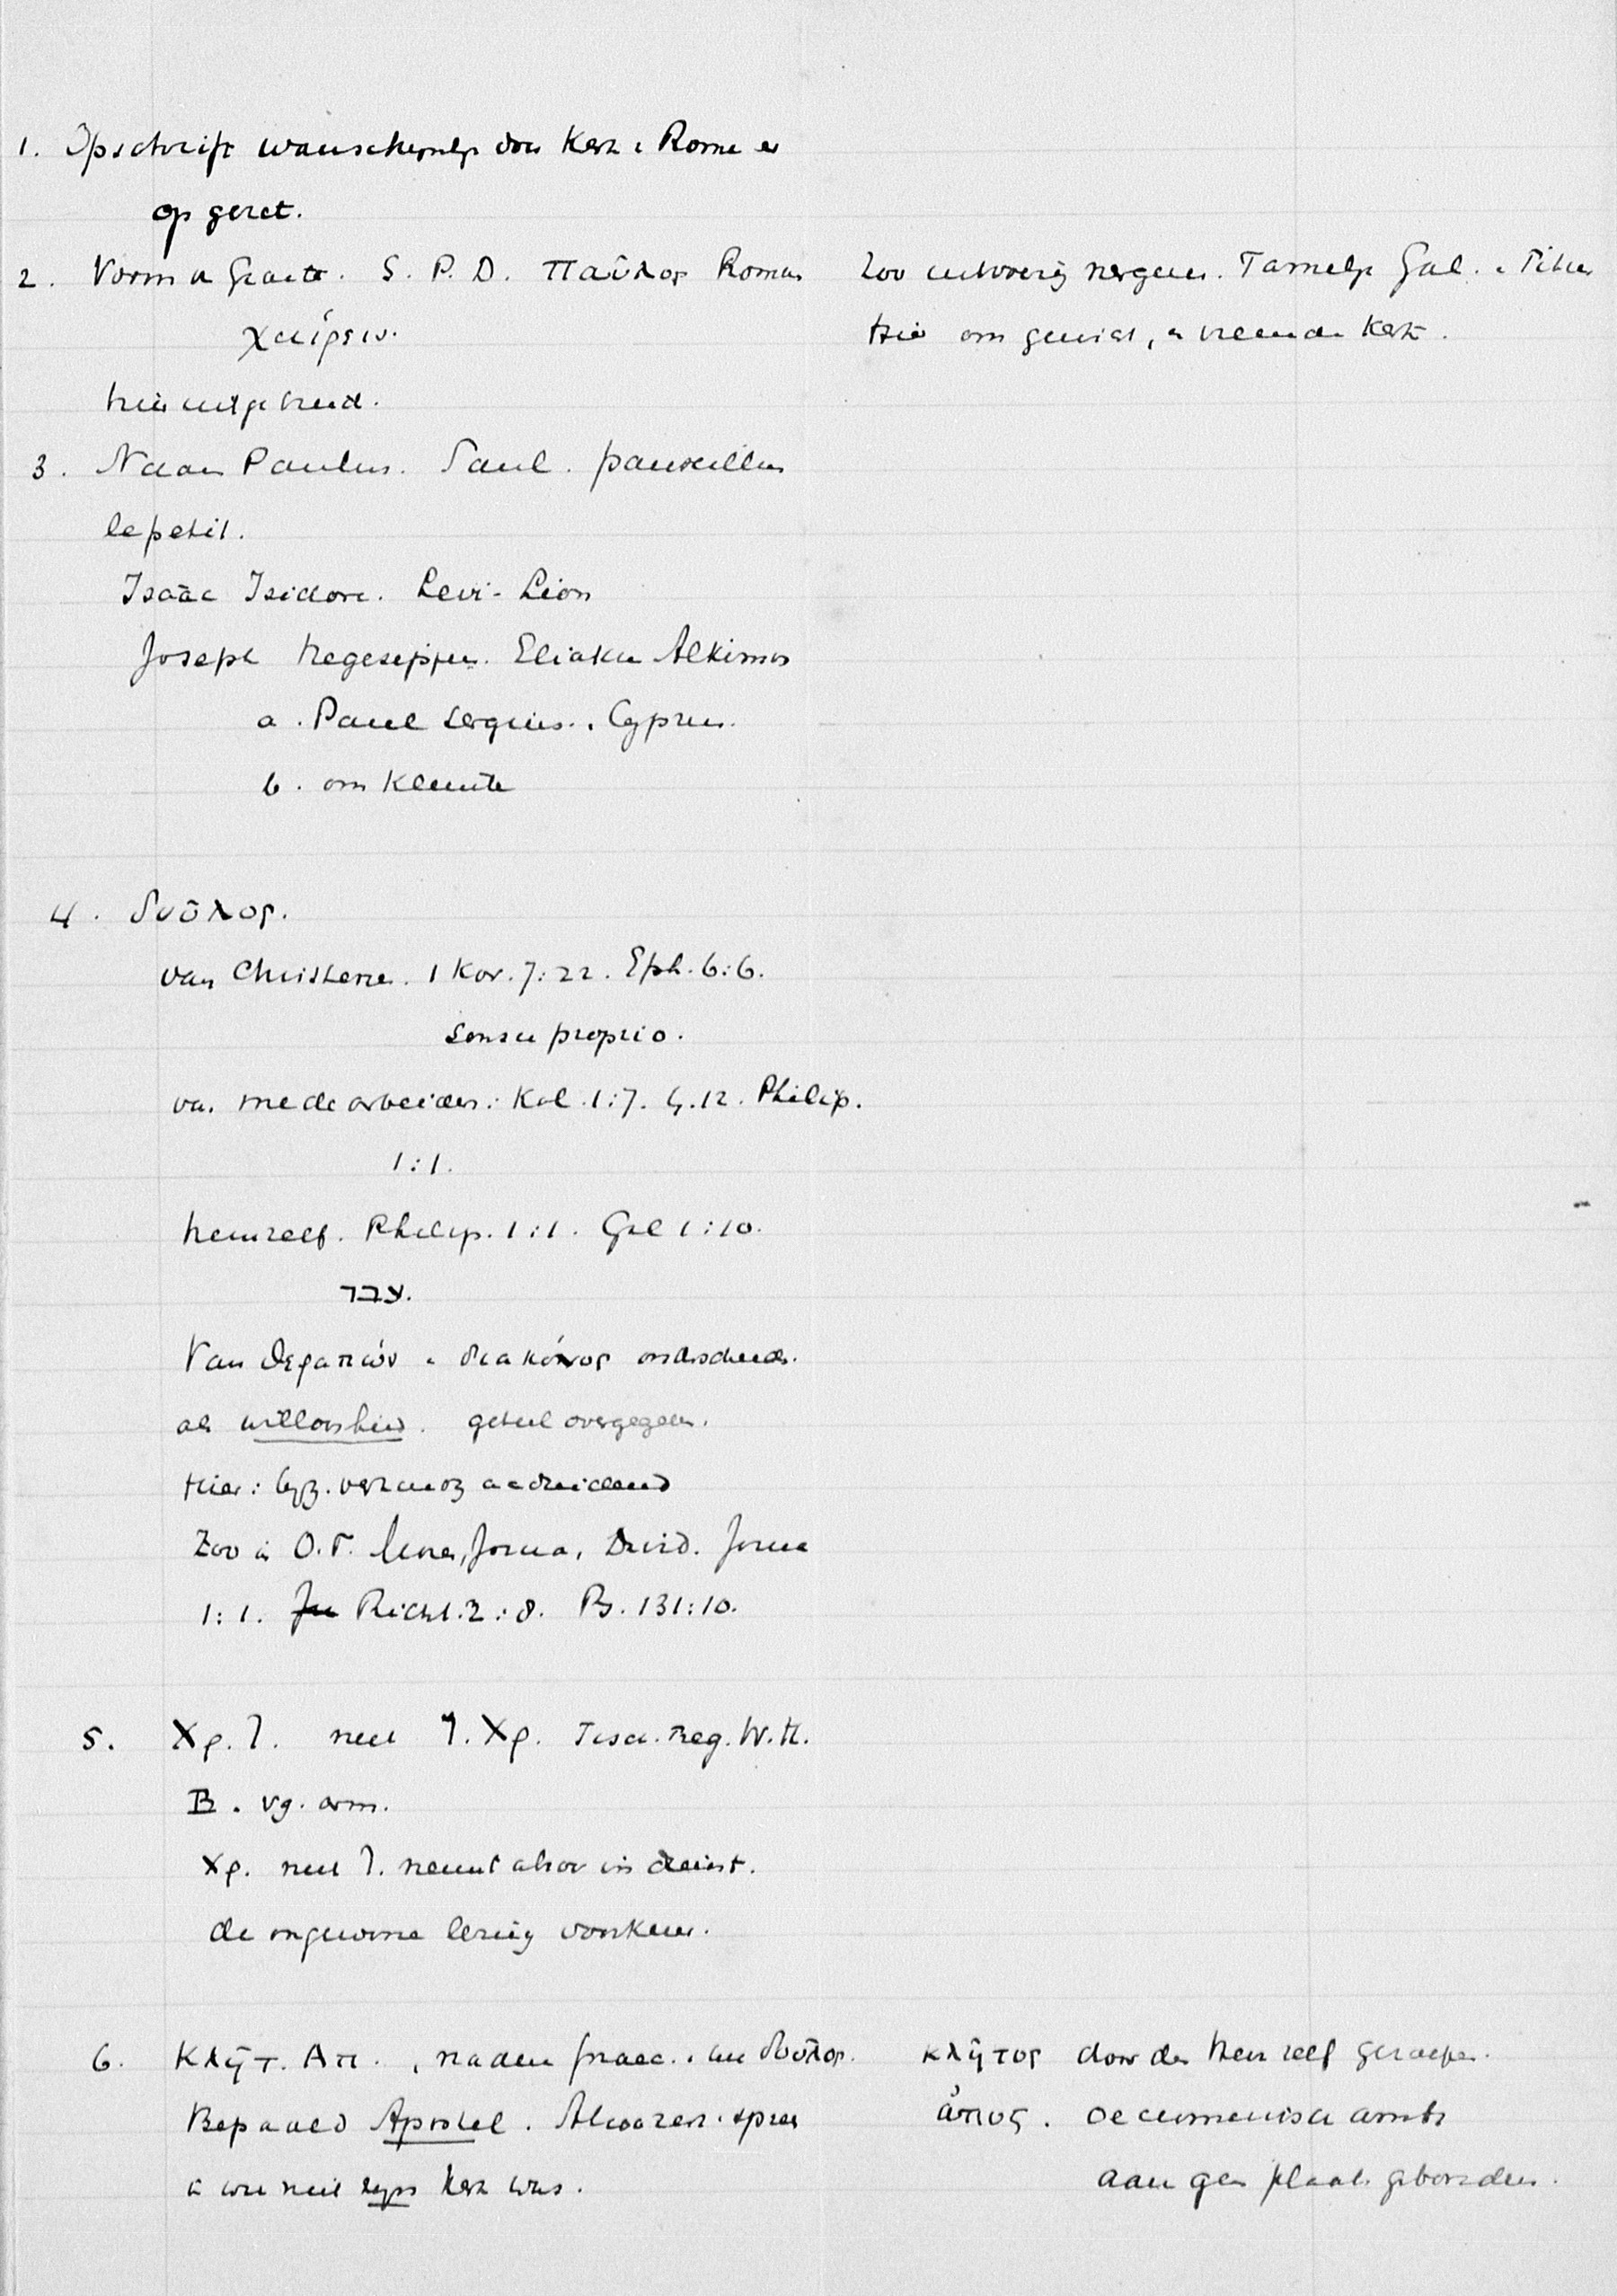 1. Opschrift waarschijnlijk door Kerk i Rome er
op gezet.
2. Vorm a Groete. S. P. D. Παῦλος Romanis
χαίρειν.
hier uitgebreid.
Zoo uitvoerig nergens. Tamelijk Gal. Titus
Hier om gewicht, vreemde Kerk.
3. Naam Paulus. Saul. pauxillus
le petit.
Isaäc Isidore. Levi - Lion
Joseph Hegesippus. Eliakim Alkimos
a. Paul Sergius. Cyprus.
b. om kleinte
4. δοῦλος.
van Christenen. 1 Kor. 7:22. Eph. 6:6.
sensu proprio.
va. medearbeiders: Kol. 1:7. 4.12. Philip.
1:1.
hemzelf. Philip. 1:1. Gal 1:10.
עבד.
Van θεραπών διακόνος onderscheiden.
als willoosheid. geheel overgegeven.
Hier: byz. aanduidend
Zoo in O.T. Mozes, Jozua, David. Jozua
1:1. Richt. 2:8. Ps. 131:10.
5. Χρ. Ἰ. niet Ἰ. Χρ. Tisch. Treg. W.H.
B. vg. arm.
Χρ. niet Ἰ. neemt alzoo in dienst.
de ongewone lezing voorkeur.
6. Κλῆτ. Απ. , nader praec. δοῦλος.
Bepaald Apostel. Alvorens spreken
wie niet zijn Kerk was.
κλῆτος door den Heer zelf geroepen.
ἄπος. oecumenisch ambt
aan geen plaats gebonden.